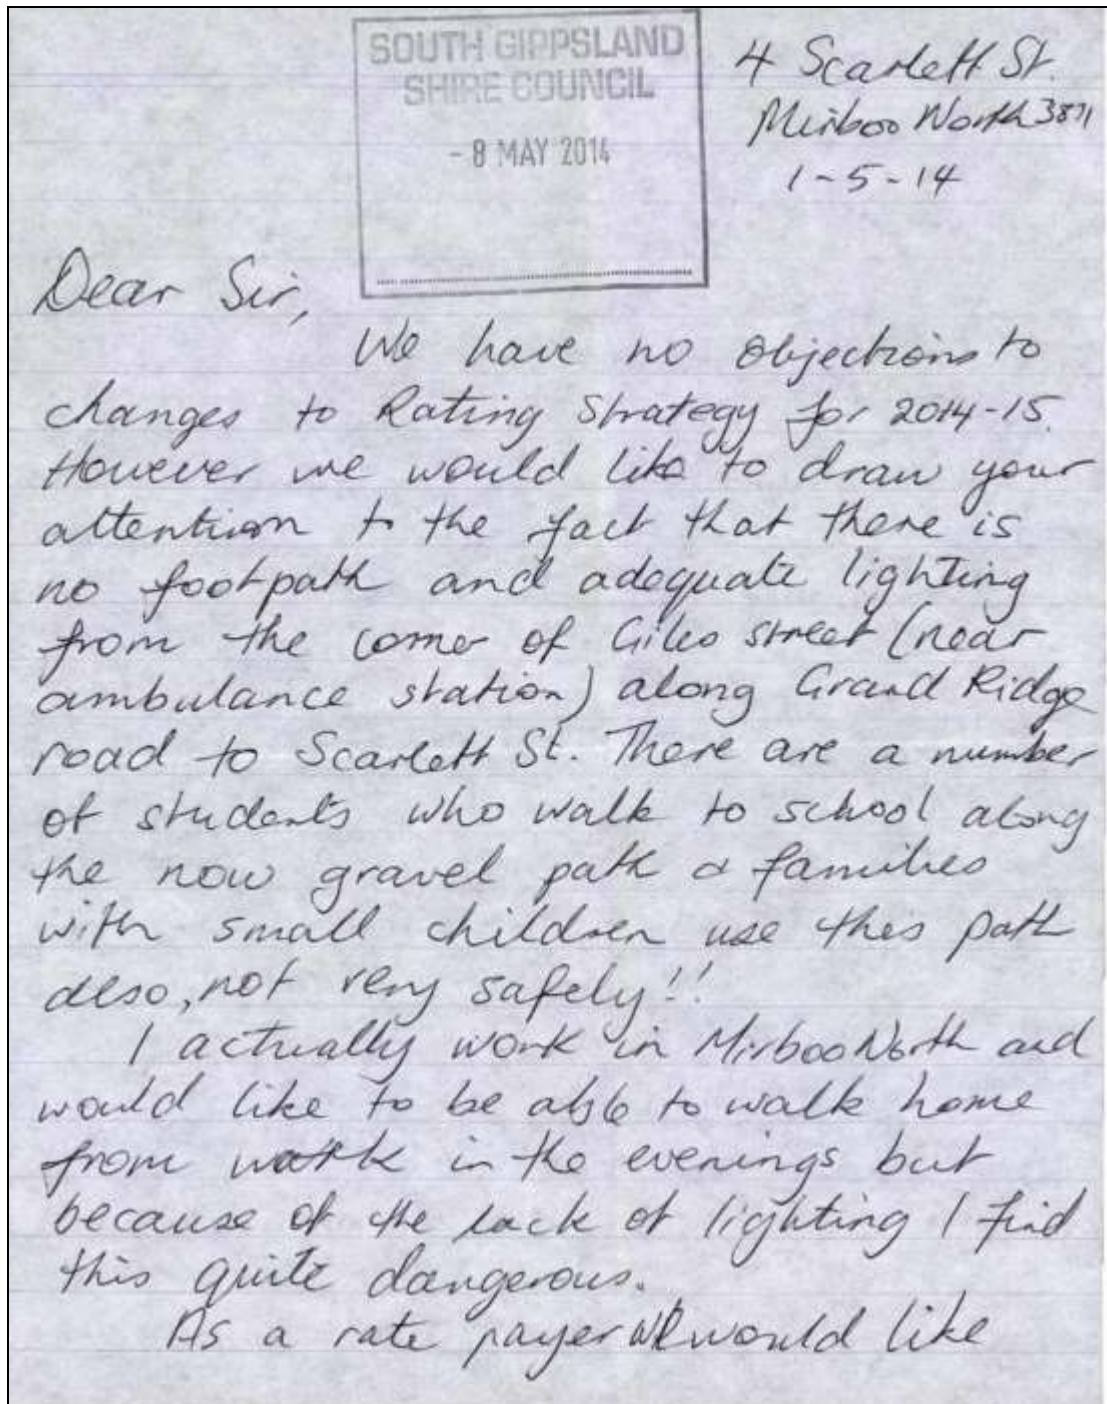 SOUTH GIPPSLAND
SHIRE COUNCIL
- 8 MAY 2014
4 Scarlett St.
Mirboo North 3871
1-5-14
Dear Sir,
We have no objections to
changes to Rating Strategy for 2014-15.
However we would like to draw your
attention to the fact that there is
no footpath and adequate lighting
from the corner of Giles street (near
ambulance station) along Grand Ridge
road to Scarlett St. There are a number
of students who walk to school along
the now gravel path & families
with small children use this path
also, not very safely!!
I actually work in Mirboo North and
would like to be able to walk home
from work in the evenings but
because of the lack of lighting I find
this quite dangerous.
As a rate payer we would like